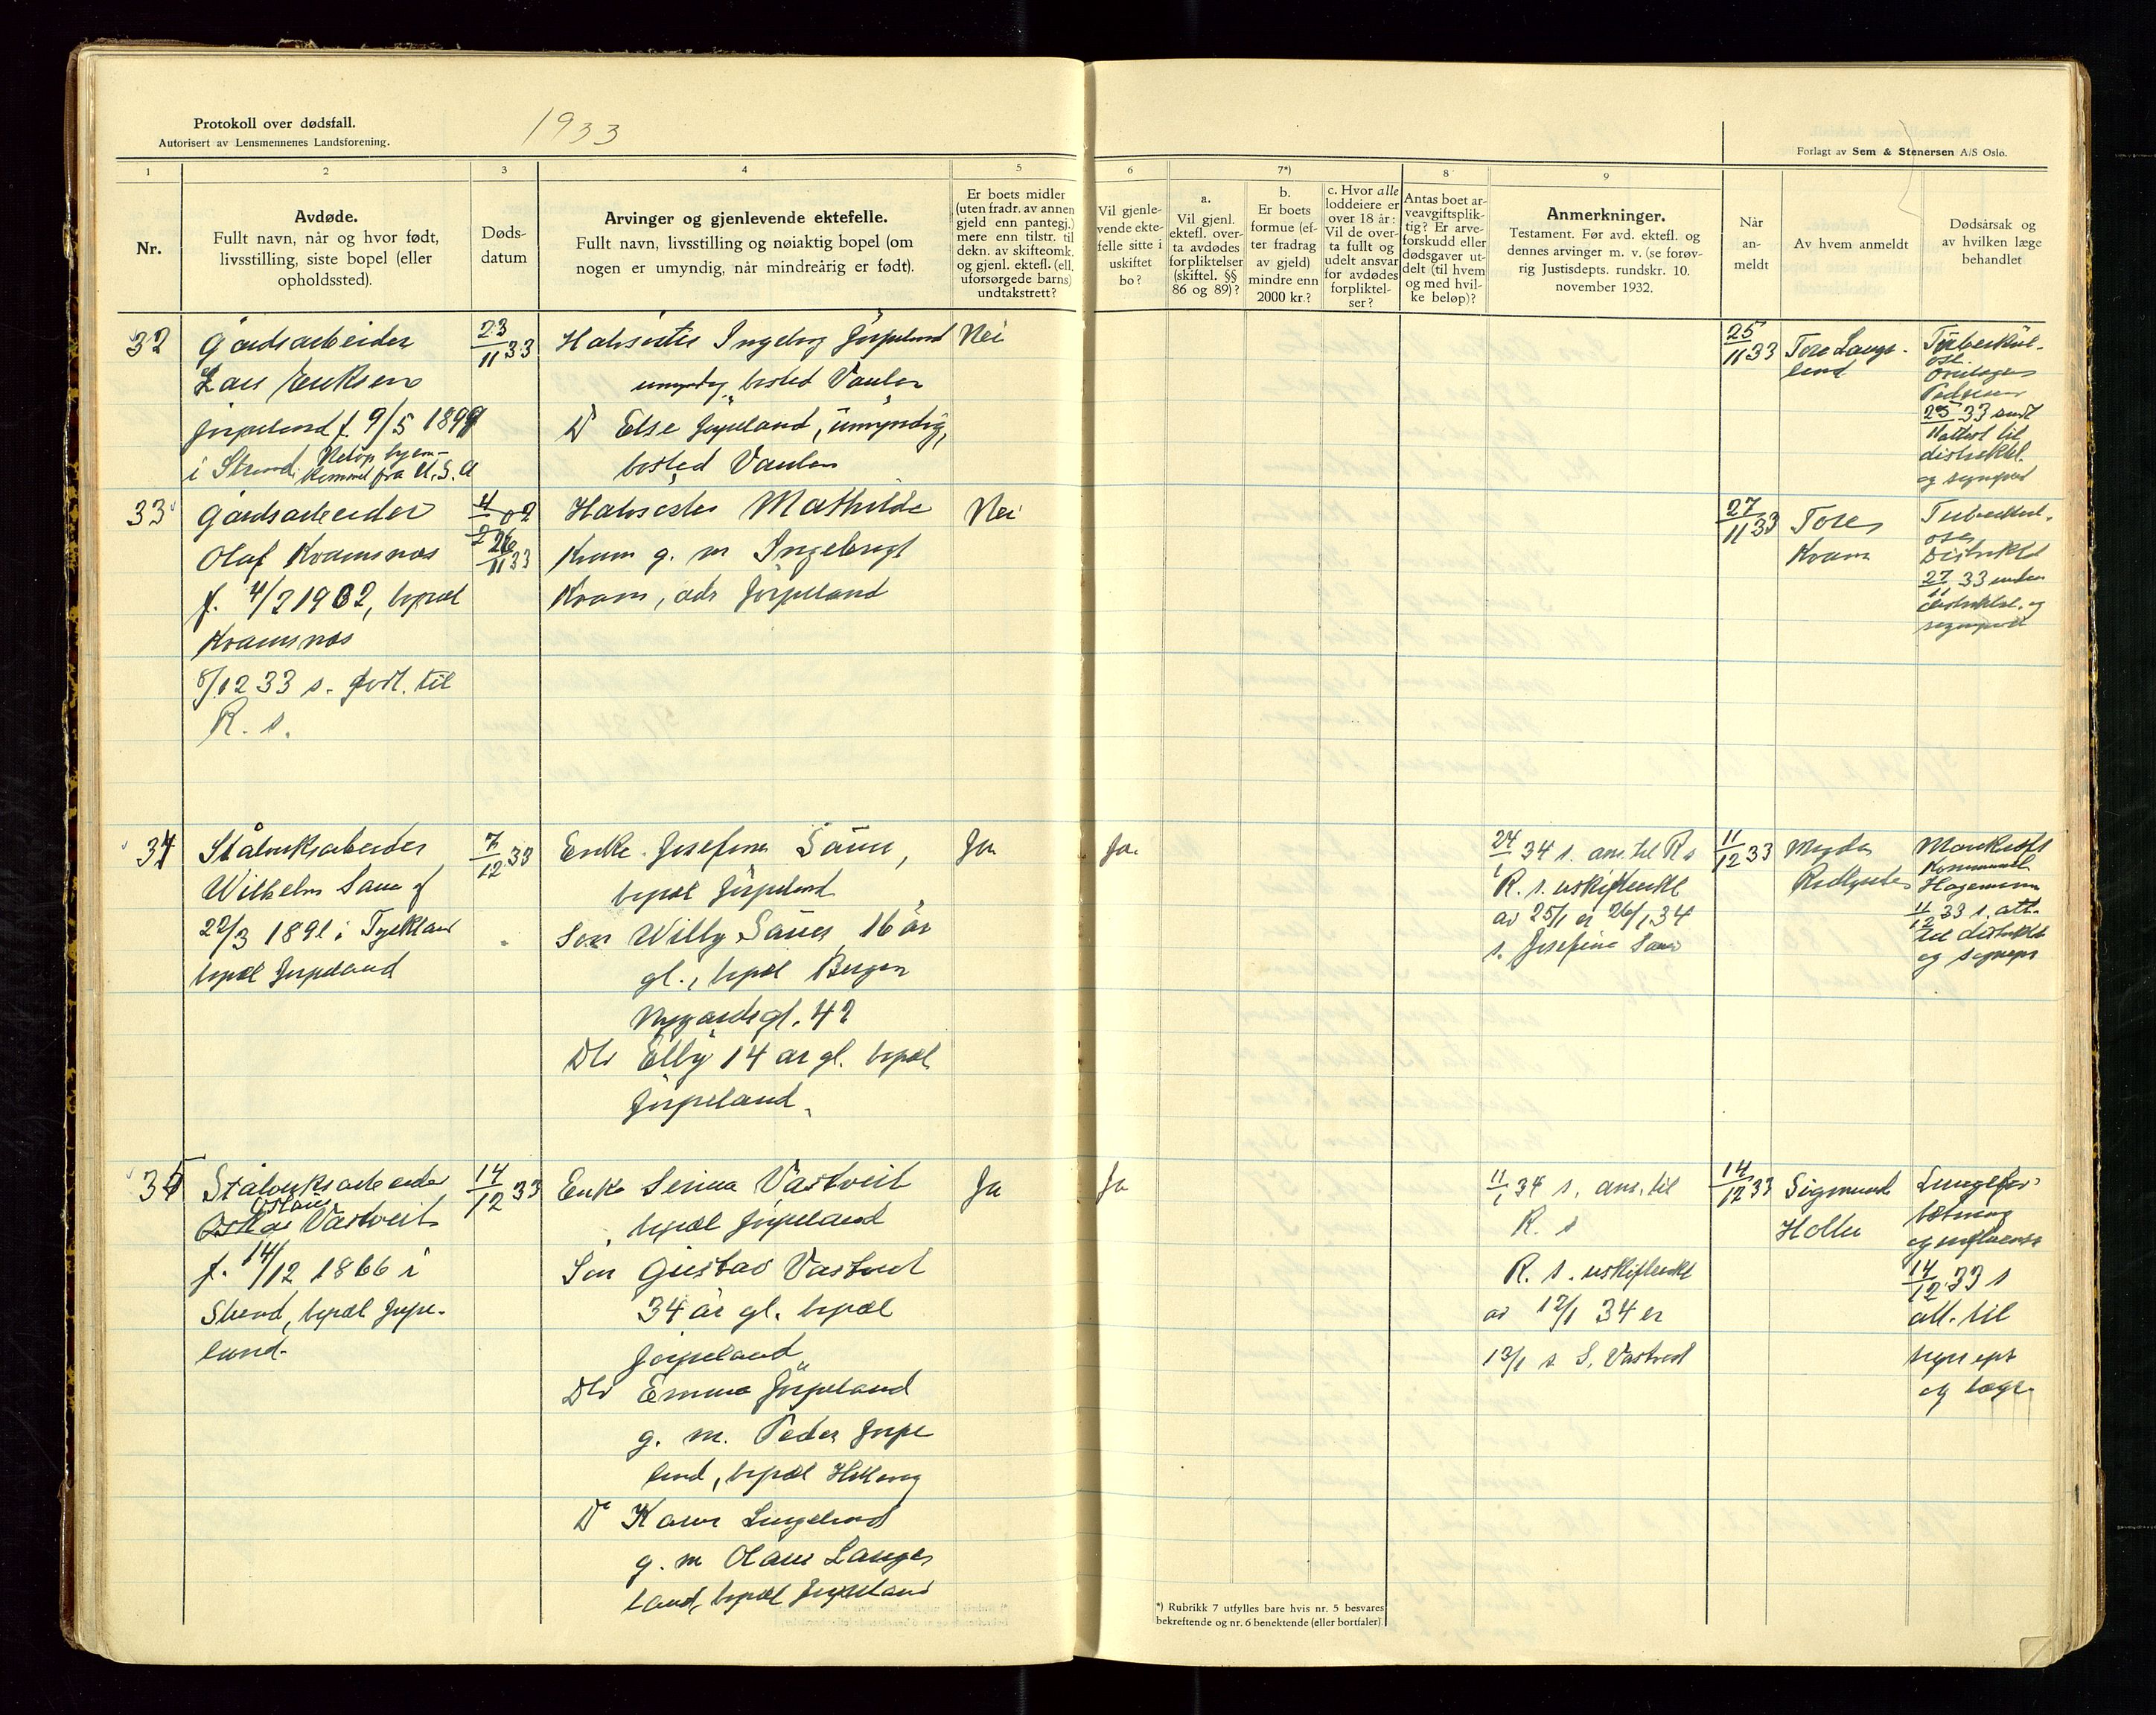 Protokoll over dødsfall.
Autorisert av Lensmennenes Landsforening.
1933
Forlagt av Sem & Stenersen A/S Oslo.
1
2
3
4
5
6
7*)
8
9
Nr.
Avdøde.
Fullt navn, når og hvor født,
livsstilling, siste bopel (eller
opholdssted).
Døds-
datum
Arvinger og gjenlevende ektefelle.
Fullt navn, livsstilling og nøiaktig bopel (om
nogen er umyndig, når mindreårig er født).
Er boets midler
(uten fradr. av annen
gjeld enn pantegj.)
mere enn tilstr. til
dekn. av skifteomk.
og gjenl. ektefl. (ell.
uforsørgede barns)
undtakstrett?
Vil gjenle-
vende ekte-
felle sitte i
uskiftet
bo?
a.
Vil gjenl.
ektefl. over-
ta avdødes
forpliktelser
(skiftel. §§
86 og 89)?
b.
Er boets
formue (ef-
ter fradrag
av gjeld)
mindre enn
2000 kr.?
c. Hvor alle
loddeiere er
over 18 år:
Vil de over-
ta fullt og
udelt ansvar
for avdødes
forpliktel-
ser?
Antas boet ar-
veavgiftsplik-
tig? Er arve-
forskudd eller
dødsgaver ut-
delt (til hvem
og med hvil-
ke beløp)?
Anmerkninger.
Testament. Før avd. ektefl. og
dennes arvinger m. v. (se forøv-
rig Justisdepts. rundskr. 10.
november 1932.
Når
an-
meldt
Av hvem anmeldt
Dødsårsak og
av hvilken læge
behandlet
32
Gårdsarbeider
Lars Eriksen
Jørpeland f. 9/5 1899
i Strand. Netop hjem-
kommet fra U.S.A
23/11 33
Halvsøster Ingeborg Jørpeland
umyndig, bosted Vaulen
D Else Jørpeland, umyndig,
bosted Vaulen
Nei
25/11 33
Tore Lange-
land
Tuberkul-
ose
25 33 sendt
distriktsl.
33
Gårdsarbeider
Olaf Kvamsnes
f. 4/2 1902, bopæl
Kvamsnes
8/12 33 s.ført. til
R. s.
4/2 02
26/11 33
Halvsøster Mathilde
Kvam g. m Ingebrigt
Kvam, adr Jørpeland
Nei
27/11 33
Tore
Kvam
Tuberkul-
ose
Distriktsl
27/11 33
34
Stålverksarbeider
Wilhelm Sauer f
22/3 1891 i Tyskland
bopæl Jørpeland
7/12 33
Enke Josefine Sauer,
bopæl Jørpeland
Søn Willy Sauer 16 år
gl., bopæl Bergen
Nygårdsgt. 42
Dtr Elly 14 år gl. bopæl
Jørpeland.
Ja
Ja.
24/1 34 s. ans. til R s
R. s. uskifteerkl
av 25/1 er 26/1 34
s. Josefine Sauer
11/12 33
Magda
11/12 33 s. att.
til distriktsl
35
Stålverksarbeider
Østen
Oskar Våstveit
f. 14/12 1866 i
Strand, bopæl Jørpe-
land.
14/12 33
Enke Serina Våstveit
bopæl Jørpeland
Søn Gustav Våstveit
34 år gl. bopæl
Jørpeland
Dtr Emma Jørpeland
g. m. Peder Jørpe
land, bopæl
D Karen Langeland
g. m Olaus Lange
land, bopæl Jørpeland
Ja
Ja
11/1 34 s. ans. til
R. s
R. s. uskifteerkl
av 12/1 34 er
13/1 s S. Våstveit
14/12 33
Sigmund
Holta
Lungebe-
tennelse
og influensa
14/12 33 s
att. til
og læge
*) Rubrikk 7 utfylles bare hvis nr. 5 besvares
bekreftende og nr. 6 benektende (eller bortfaler).